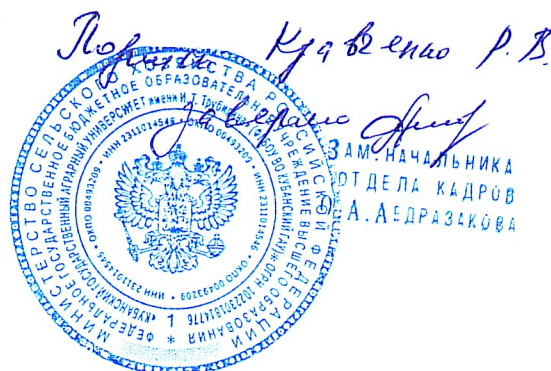 Подпись Кравченко Р. В.
заверяю
ЗАМ. НАЧАЛЬНИКА
ОТДЕЛА КАДРОВ
МИНИСТЕРСТВО СЕЛЬСКОГО ХОЗЯЙСТВА РОССИЙСКОЙ ФЕДЕРАЦИИ
ФЕДЕРАЛЬНОЕ ГОСУДАРСТВЕННОЕ БЮДЖЕТНОЕ ОБРАЗОВАТЕЛЬНОЕ УЧРЕЖДЕНИЕ ВЫСШЕГО ОБРАЗОВАНИЯ *
«КУБАНСКИЙ ГОСУДАРСТВЕННЫЙ АГРАРНЫЙ УНИВЕРСИТЕТ имени И. Т. Трубилина» (ФГБОУ ВО КУБАНСКИЙ ГАУ) * ОГРН 1022301614776
* ИНН 2311014546 * ОКПО 00493209 * ИНН 2311014546 * ОКПО 00493209 * ИНН 2311014546 * ОКПО 00493209
1